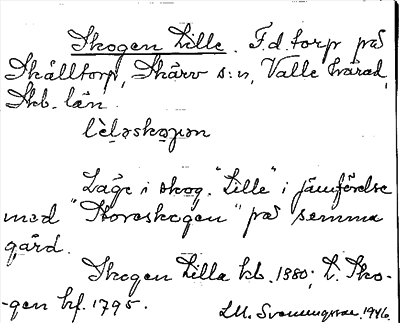 Skogen Lille. F.d. torp på
Skälltorp, Skärv s:n, Valle härad,
Skb. län.
lèləskoɡən
Läge i skog. "Lille" i jämförelse
med "Storaskogen" på samma
gård.
Skogen Lilla kb. 1880; L. Sko-
-gen hf. 1795.
1946.